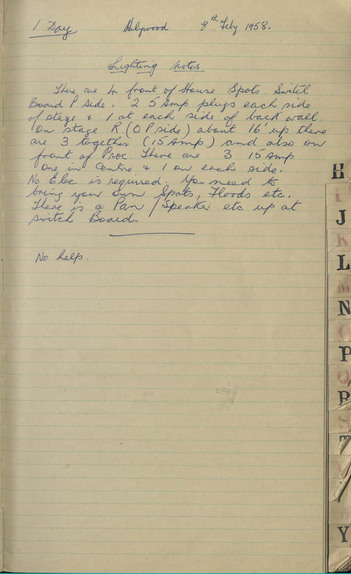 1 Day Holywood 8th Feby 1958.
Lighting Notes
There are 4 front of House Spots Switch
Board P side. 2 5 Amp plugs each side
of stage & 1 at each side of back wall.
On stage R (O P side) about 16' up there
are 3 together (15 Amp) and also on
front of Proc. There are 3 15 Amp
One in Centre & 1 on each side.
No Elec is required. You need to
bring your own Spots, Floods etc.
There is a Pan / Speaker etc up at
switch Board.
No help.
H
J
L
N
P
R
T
Y